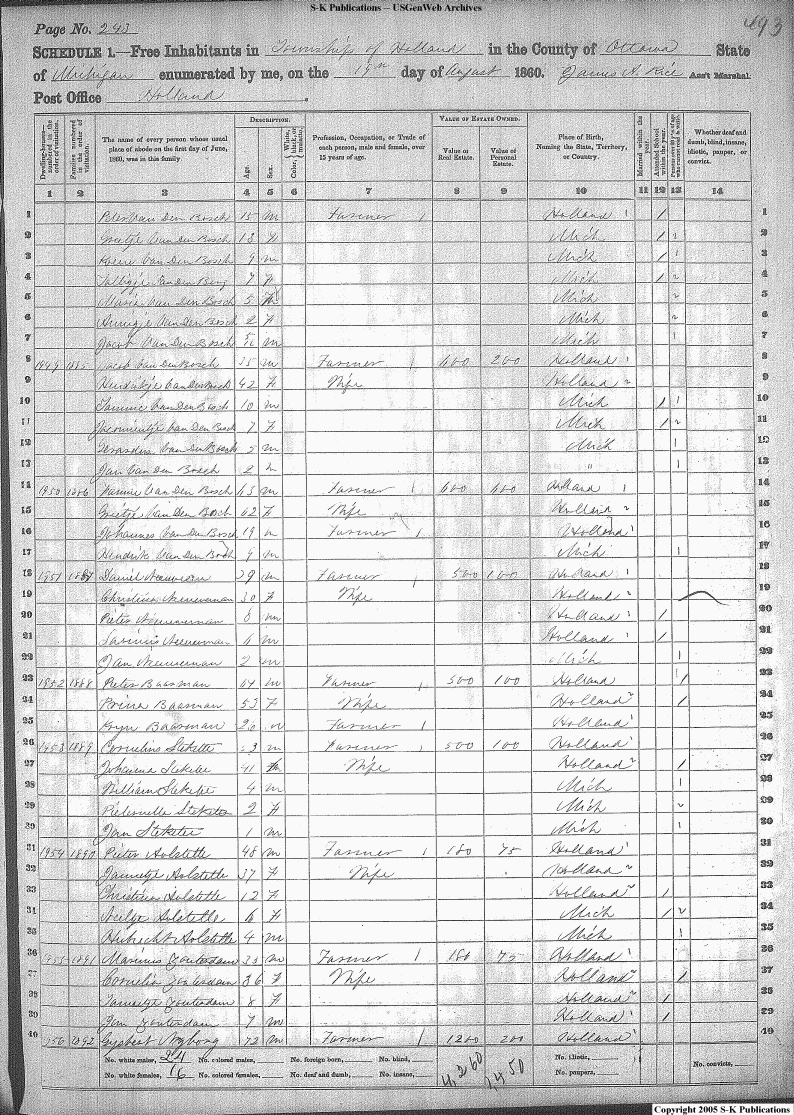 S-K Publications – USGenWeb Archives
493
Page No. 243
SCHEDULE 1.—Free Inhabitants in Township of Holland in the County of Ottawa State
of Michigan enumerated by me, on the 19th day of August 1860. James A. Rice Ass't Marshal.
Post Office Holland.
Dwelling-houses—numbered in the order of visitation.
Families numbered in the order of visitation.
The name of every person whose usual place of abode on the first day of June, 1860, was in this family
DESCRIPTION.
Age
Sex.
Color, White, black, or mulatto.
Profession, Occupation, or Trade of each person, male and female, over 15 years of age.
VALUE OF ESTATE OWNED.
Value of Real Estate.
Value of Personal Estate.
Place of Birth, Naming the State, Territory, or Country.
Married within the year.
Attended School within the year.
Whether deaf and dumb, blind, insane, idiotic, pauper, or convict.
1 2 3 4 5 6 7 8 9 10 11 12 13 14
1 Peter Van Den Bosch 15 m Farmer 1 Holland 1 / 1
2 Van Den Bosch 13 f Mich / 2 2
3 Van Den Bosch 9 m Mich / 1 3
4 7 f Mich / 2 4
5 Maria Van Den Bosch 5 f Mich 2 5
6 Van Den Bosch 2 f Mich 2 6
7 Jacob Van Den Bosch m Mich 1 7
8 1949 1885 Jacob Van Den Bosch 35 m Farmer 1 600 200 Holland 1 8
9 Hendrikje Van Den Bosch 42 f Wife Holland 2 9
10 Van Den Bosch 10 m Mich / 1 10
11 Van Den Bosch 7 f Mich / 2 11
12 Van Den Bosch 5 m Mich 1 12
13 Jan Van Den Bosch 2 m " 1 13
14 1950 1886 Van Den Bosch 63 m Farmer 1 600 600 Holland 1 14
15 Grietje Van Den Bosch 62 f Wife Holland 2 15
16 Johannes Van Den Bosch 19 m Farmer 1 Holland 1 16
17 Hendrik Van Den Bosch 9 m Mich 1 17
18 1951 1887 Daniel 39 m Farmer 1 500 100 Holland 1 18
19 Christina Neeuweman 30 f Wife Holland 2 19
20 Pieter Neeuweman 8 m Holland 1 / 20
21 Neeuweman 6 m Holland 1 / 21
22 Jan Neeuweman 2 m Mich 1 22
23 1952 1888 Pieter Baasman 64 m Farmer 1 500 100 Holland 1 / 23
24 Prina Baasman 53 f Wife Holland 2 / 24
25 Kryn Baasman 26 m Farmer 1 Holland 1 25
26 1953 1889 Cornelius Steketee m Farmer 1 500 100 Holland 1 26
27 Johanna Steketee 41 f Wife Holland 2 / 27
28 William Steketee 4 m Mich 1 28
29 Steketee 2 f Mich 2 29
30 Jan Steketee 1 m Mich 1 30
31 1954 1890 Pieter Holstette 48 m Farmer 1 180 75 Holland 1 31
32 Jannetje Holstette 37 f Wife Holland 2 32
33 Christina Holstette 12 f Holland 2 / 33
34 Neeltje Holstette 6 f Mich / 2 34
35 Hubrecht Holstette 4 m Mich 1 35
36 1955 1891 Marinus Zouterdam 35 m Farmer 1 180 75 Holland 1 36
37 Cornelia Zouterdam 36 f Wife Holland 2 / 37
38 Jannetje Zouterdam 8 f Holland 2 / 38
39 Jan Zouterdam 7 m Holland 1 / 39
40 1956 1892 Gysbert 72 m Farmer 1 1200 200 Holland 1 40
No. white males, 24 No. colored males, No. foreign born, No. blind, No. idiotic, No. convicts,
No. white females, 16 No. colored females, No. deaf and dumb, No. insane, No. paupers,
4,260 1450
Copyright 2005 S-K Publications